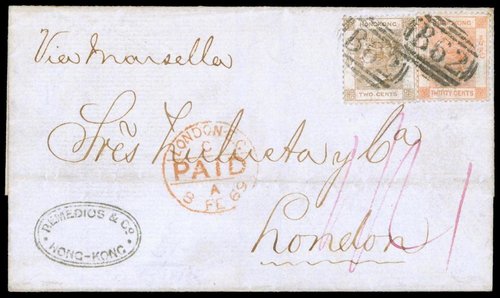 Via Marsella
HONG KONG
TWO CENTS
B62
HONG KONG
THIRTY CENTS
B62
Sres Zulueta y Ca
LONDON-E.C
C
PAID
A
8 FE 69
REMEDIOS & Co
HONG-KONG
London